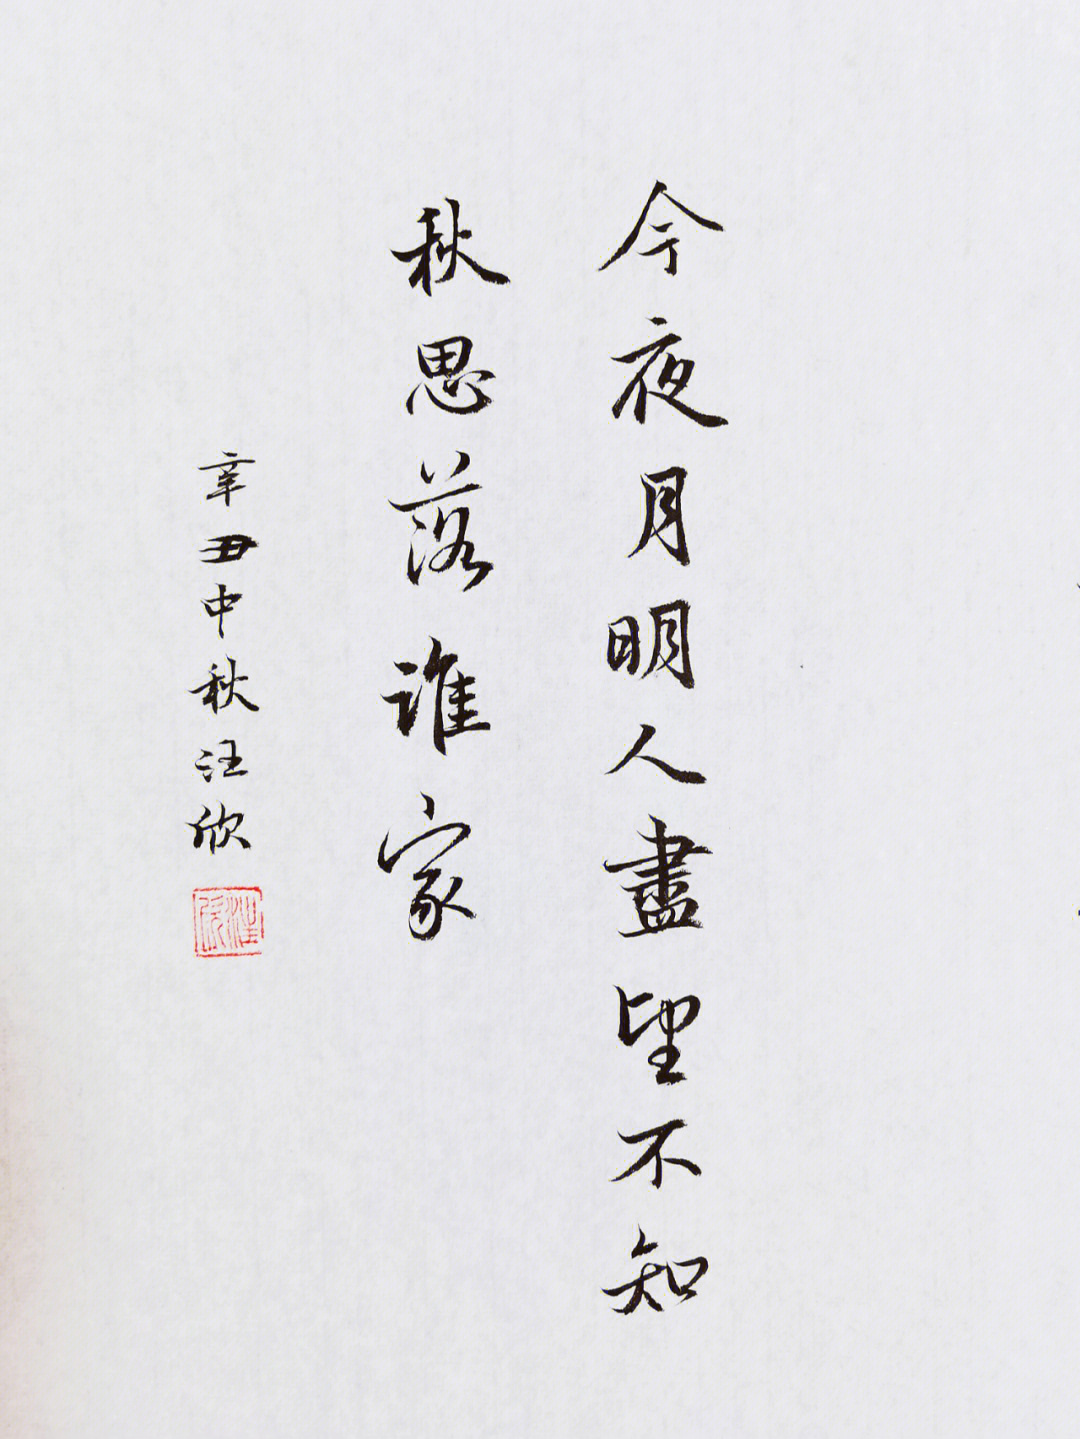 今夜月明人盡望不知
秋思落谁家
辛丑中秋汪欣